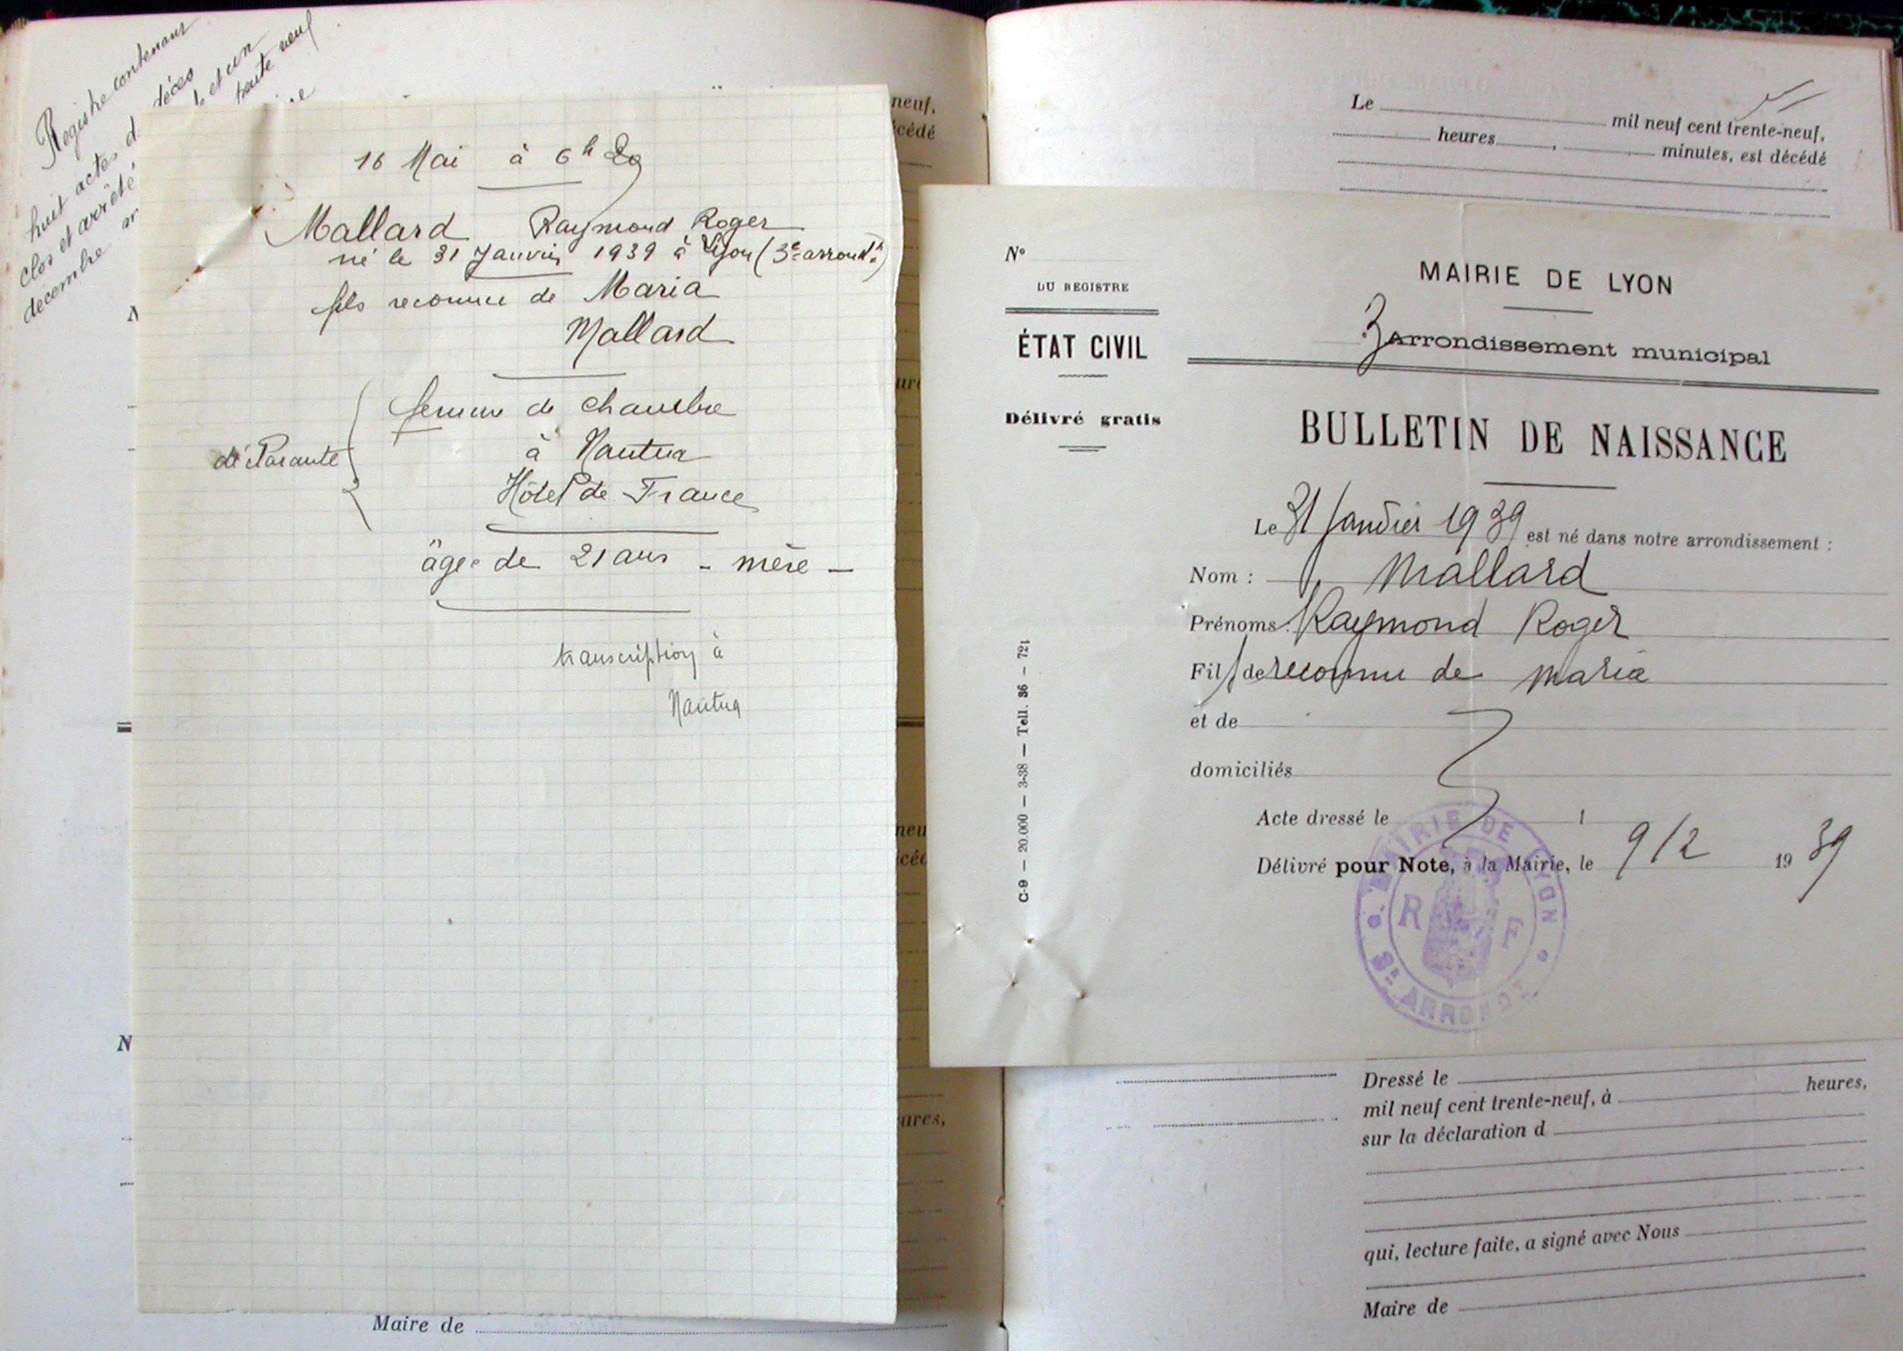 Registre contenant
huit actes d décès
clos et arrêté et un
décembre trente neuf
16 Mai à 6 h 20
Mallard Raymond Roger
né le 31 Janvier 1939 à Lyon (3e arrondt)
fils reconnu de Maria
Mallard
femme de chambre
déclarante
à Nantua
Hôtel de France
âgée de 21 ans - mère -
transcription à
Nantua
neuf,
cédé
ures,
N
Maire de
Le
mil neuf cent trente-neuf,
heures, minutes, est décédé
No
DU REGISTRE
ÉTAT CIVIL
Délivré gratis
C-9 — 20.000 — 3-38 — Tell. 36 — 721
MAIRIE DE LYON
3 Arrondissement municipal
BULLETIN DE NAISSANCE
Le 31 Janvier 1939 est né dans notre arrondissement :
Nom : Mallard
Prénoms : Raymond Roger
Fils de reconnu de Maria
et de
domiciliés
Acte dressé le
Délivré pour Note, à la Mairie, le 9/2 1939
MAIRIE DE LYON
R F
3e ARRONDT
Dressé le
mil neuf cent trente-neuf, à heures,
sur la déclaration d
qui, lecture faite, a signé avec Nous
Maire de